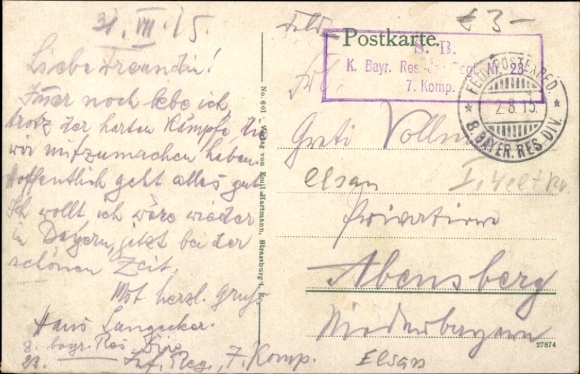 31. VII. 15.
Liebe Freundin!
Immer noch lebe ich,
trotz der harten Kämpfe die
wir mitzumachen haben.
Hoffentlich geht alles gut
Ich wollt ich wäre wieder
in Bayern, jetzt bei der
schönen Zeit.
Mit herzl. Gruß
Hans
8. bayr. Res. Div.
23. Inf. Reg. 7. Komp.
No. 601 - Verlag von Emil Hartmann, Strassburg i. E.
€ 3-
Postkarte.
S. B.
K. Bayr. Res. Nr. 23
7. Komp.
FELDPOSTEXPED
2.8.15.
8. BAYER. RES. DIV.
Greti
Elsass
I. Weltkr.
Privatiere
Abensberg
Niederbayern
27874
Elsass